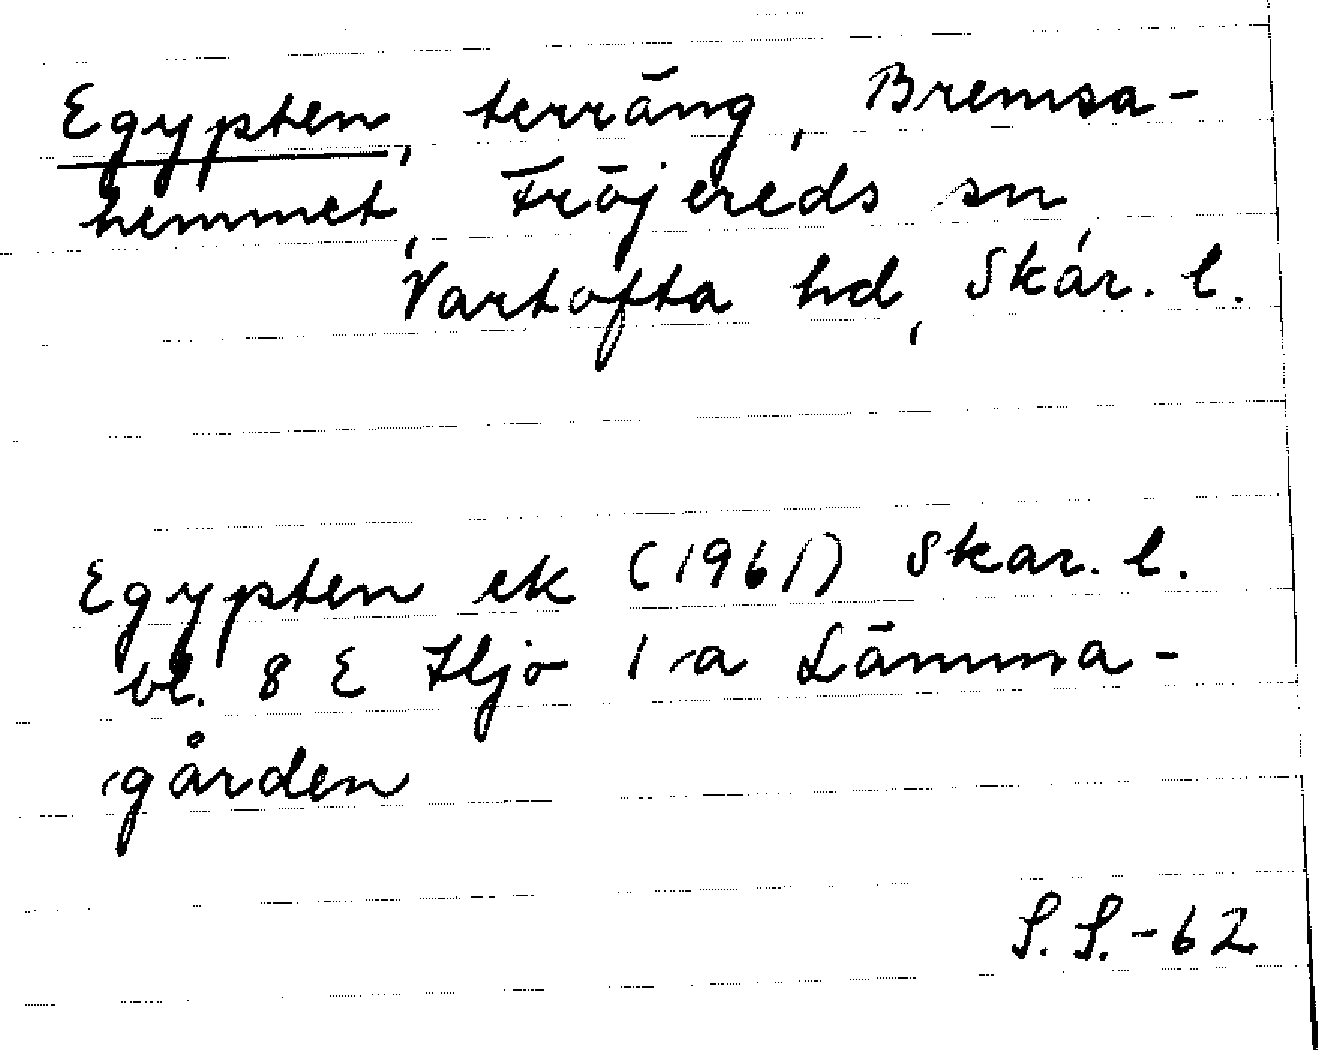 Egypten, terräng, Bremsa-
hemmet, Fröjereds sn,
Vartofta hd, Skar. l.
Egypten ek (1961) Skar. l.
bl. 8 E Hjo 1 a Lämma-
gården
S. S. -62